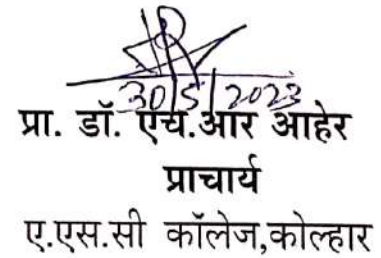 30/5/2023
प्रा. डॉ. एच.आर आहेर
प्राचार्य
ए.एस.सी कॉलेज,कोल्हार